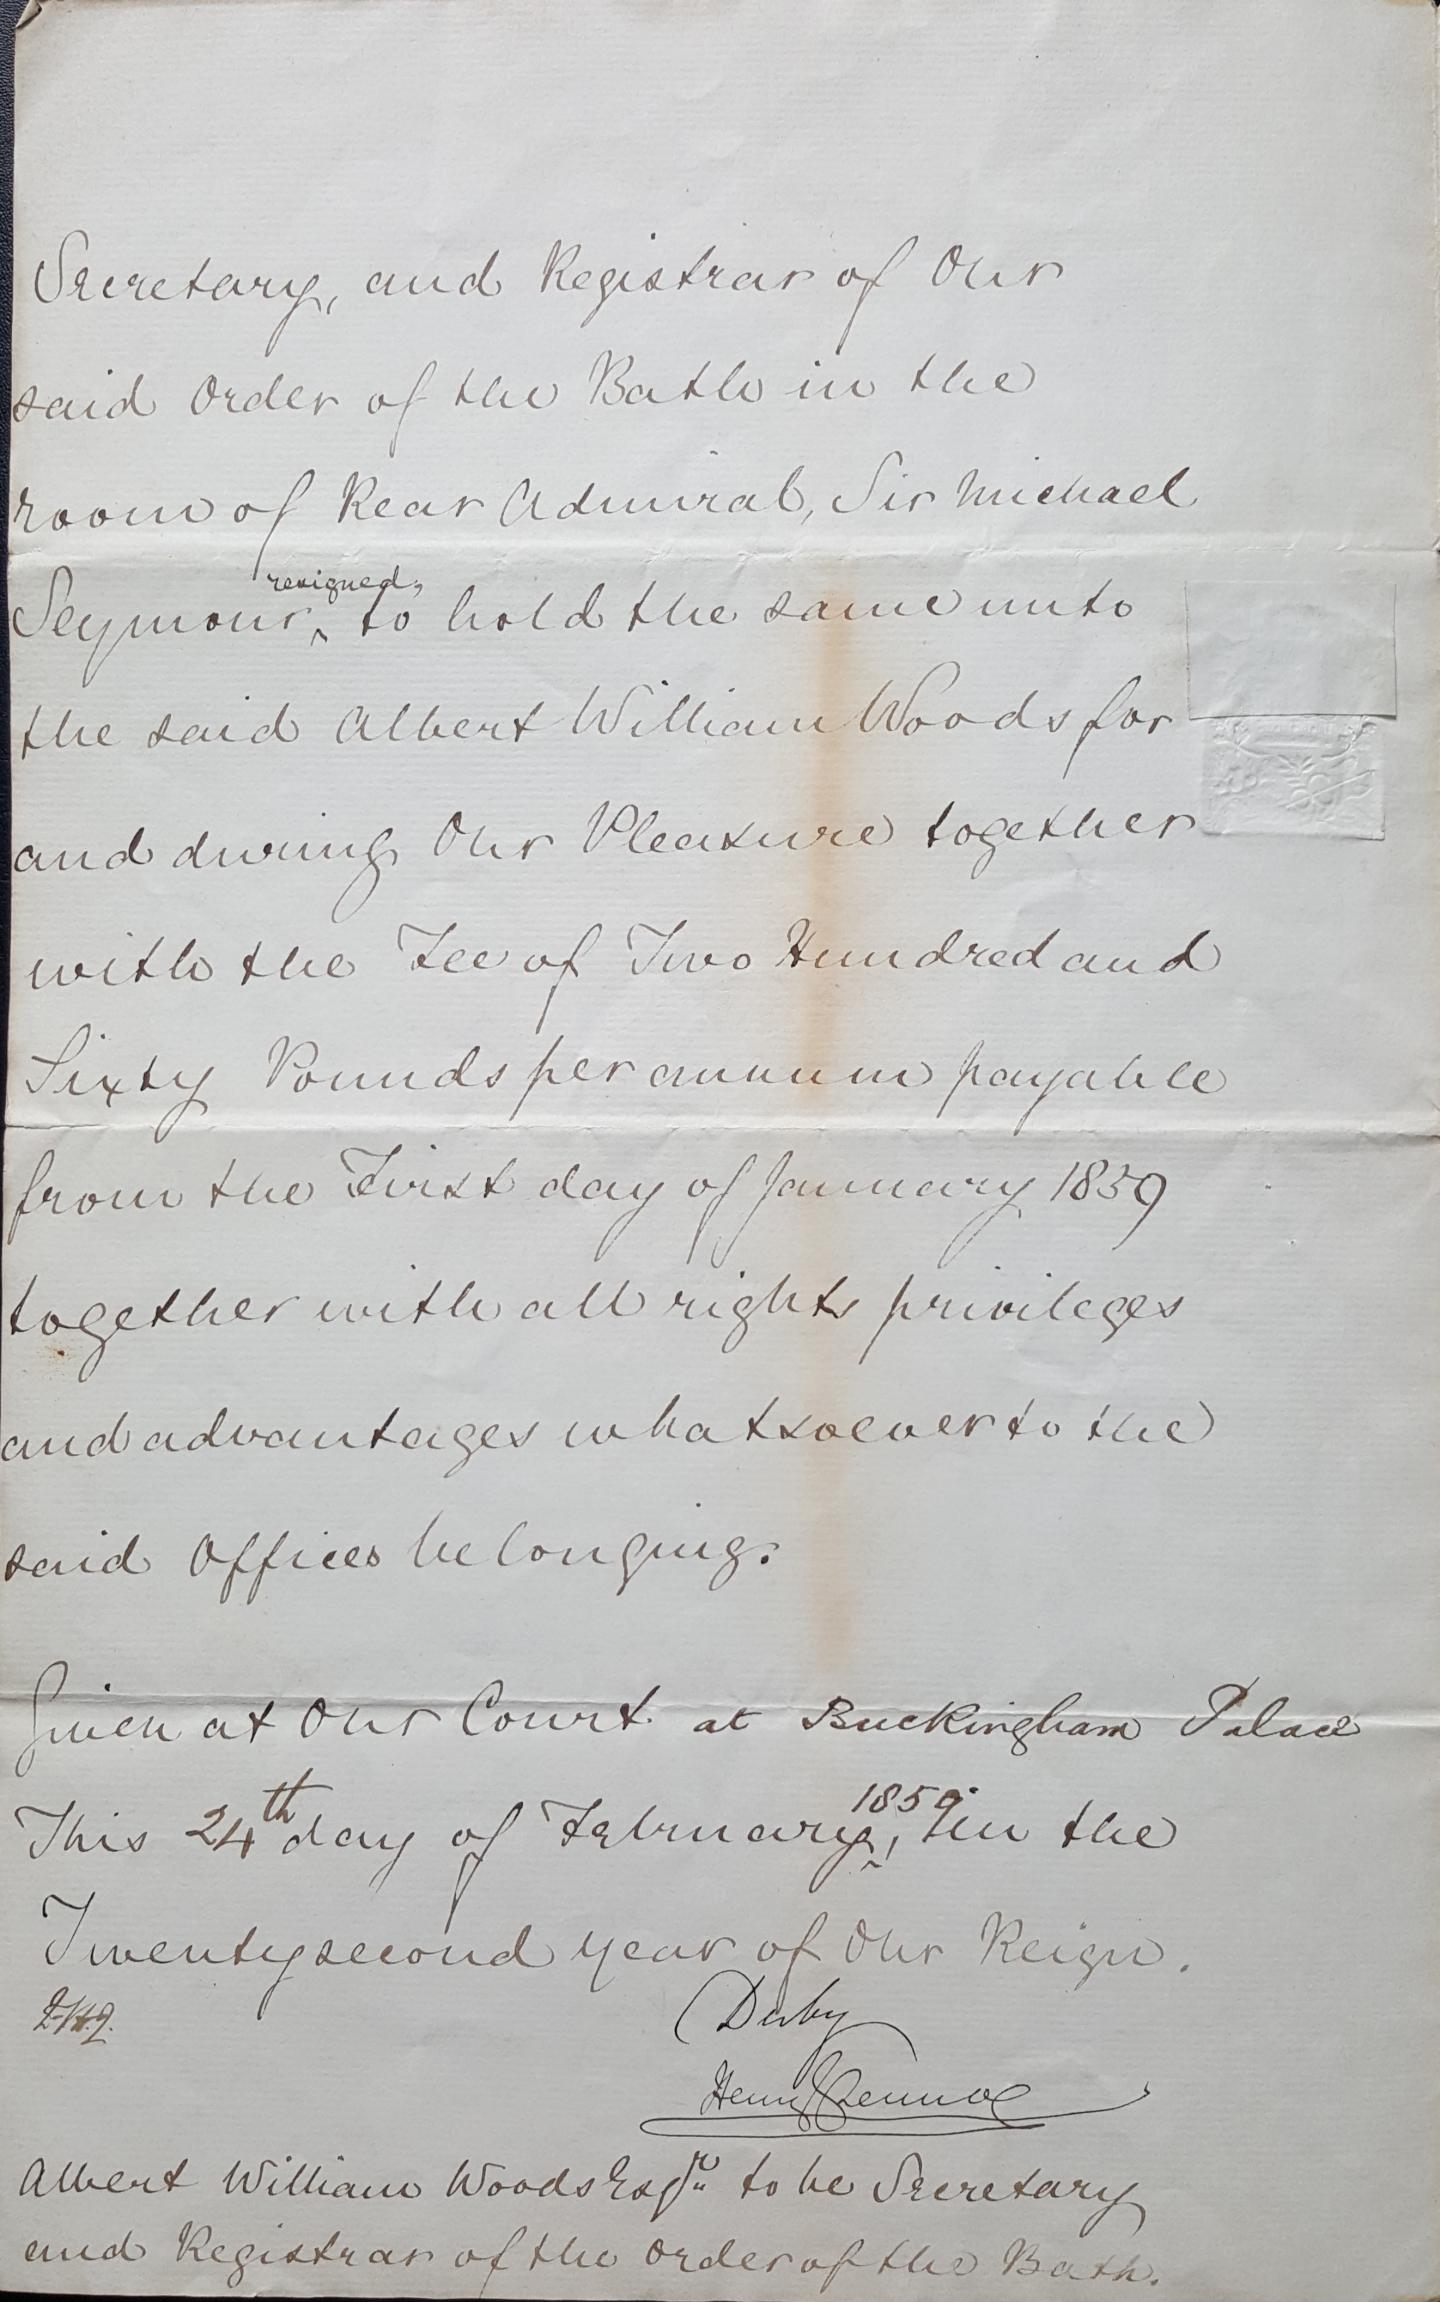 Secretary, and Registrar of Our
said Order of the Bath in the
room of Rear Admiral, Sir Michael
Seymour, ^ resigned, to hold the same unto
the said Albert William Woods for
and during Our Pleasure together
with the Fee of Two Hundred and
Sixty Pounds per annum payable
from the First day of January 1859
together with all rights privileges
and advantages whatsoever to the
said Offices belonging.
Given at Our Court at Buckingham Palace
This 24th day of February, ^ 1859. In the
Twenty second year of Our Reign.
Derby
Henry Lennox
Albert William Woods Esqr. to be Secretary
and Registrar of the Order of the Bath.